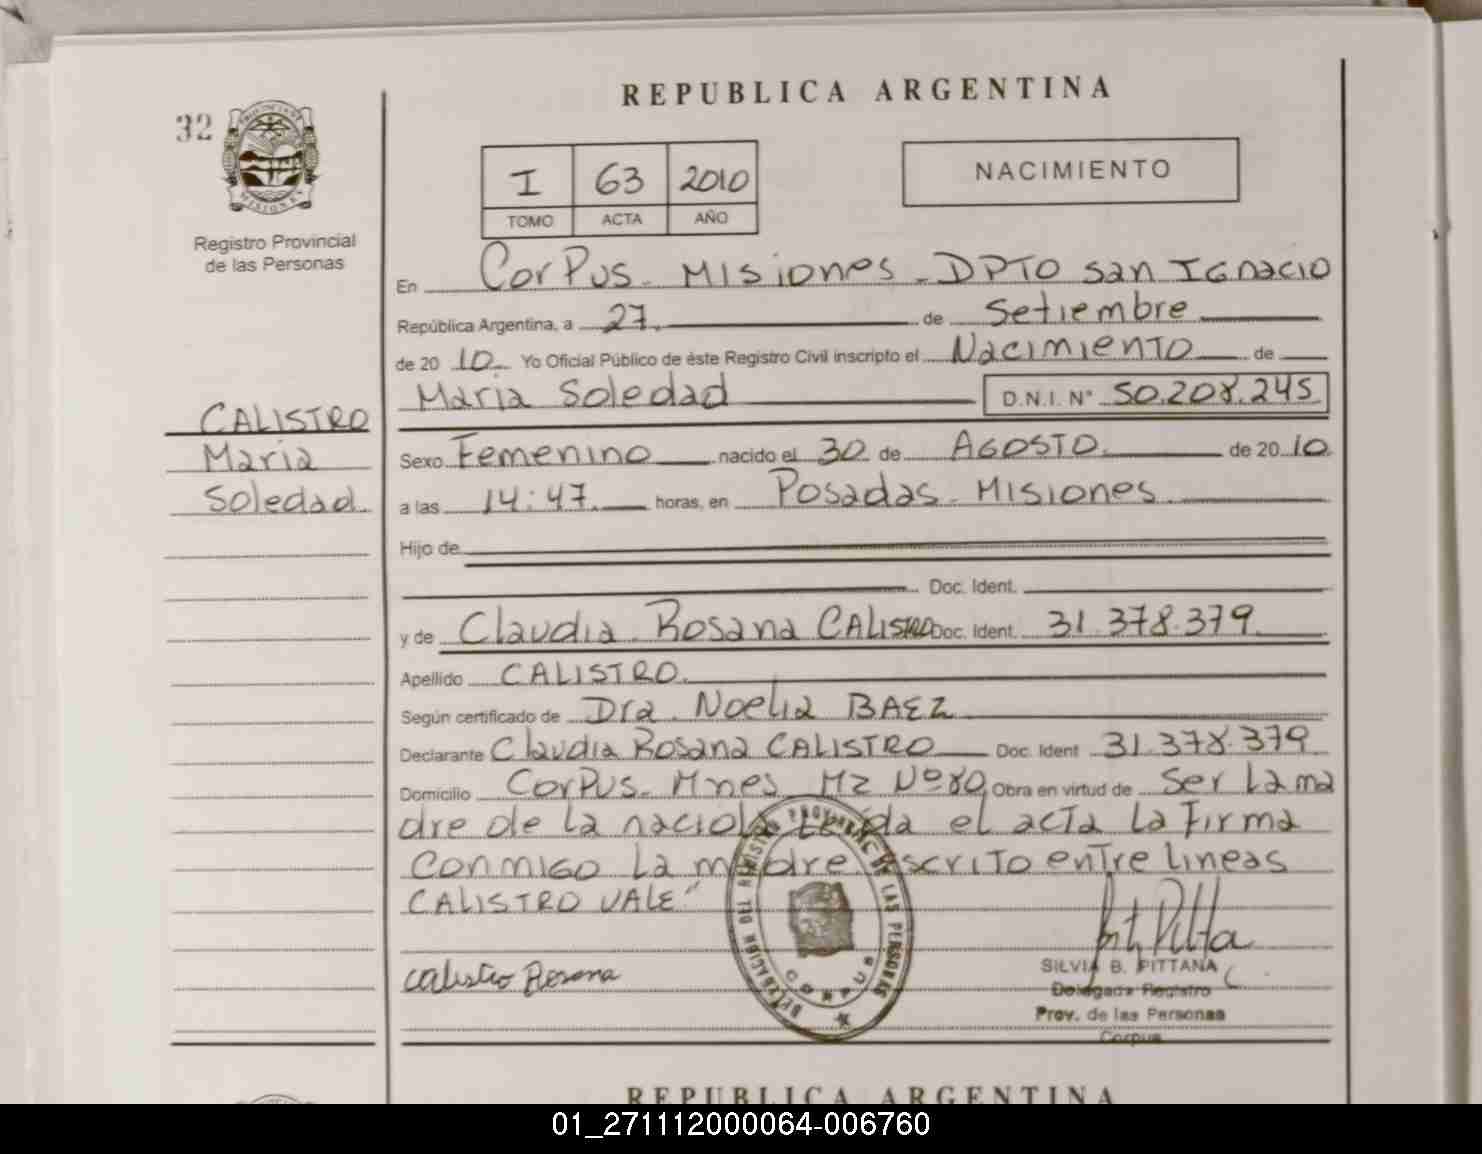 REPUBLICA ARGENTINA
32
PROVINCIA DE MISIONES
Registro Provincial
de las Personas
I 63 2010
TOMO ACTA AÑO
NACIMIENTO
En Corpus - Misiones - DPTO San Ignacio
República Argentina, a 27 de Setiembre
de 20 10 Yo Oficial Público de éste Registro Civil inscripto el Nacimiento de
Maria Soledad D.N.I. N° 50.208.245
CALISTRO
Maria
Soledad
Sexo Femenino nacido el 30 de AGOSTO de 20 10
a las 14:47 horas, en Posadas - Misiones
Hijo de
Doc. Ident.
y de Claudia Rosana CALISTRO Doc. Ident. 31.378.379
Apellido CALISTRO
Según certificado de Dra. Noelia BAEZ
Declarante Claudia Rosana CALISTRO Doc. Ident 31.378.379
Domicilio Corpus - Mnes Mz Nº 80 Obra en virtud de Ser La ma
dre de La nacida Leida el acta La Firma
conmigo La madre escrito entre lineas
CALISTRO VALE"
DELEGACION DEL REGISTRO PROVINCIAL DE LAS PERSONAS
CORPUS
Calistro Rosana
SILVIA B. PITTANA
Delegada Registro
Prov. de las Personas
Corpus
REPUBLICA ARGENTINA
01_271112000064-006760